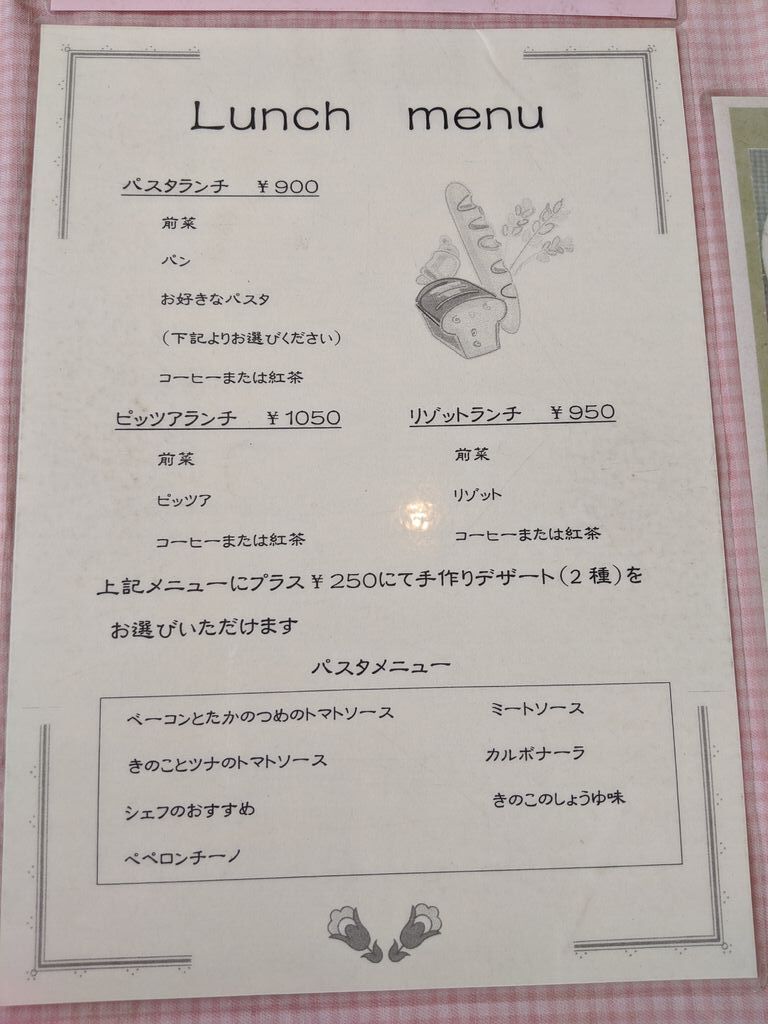 Lunch menu
パスタランチ ￥900
前菜
パン
お好きなパスタ
（下記よりお選びください）
コーヒーまたは紅茶
ピッツアランチ ￥1050
前菜
ピッツア
コーヒーまたは紅茶
リゾットランチ ￥950
前菜
リゾット
コーヒーまたは紅茶
上記メニューにプラス￥250にて手作りデザート（2種）を
お選びいただけます
パスタメニュー
ベーコンとたかのつめのトマトソース
きのことツナのトマトソース
シェフのおすすめ
ペペロンチーノ
ミートソース
カルボナーラ
きのこのしょうゆ味